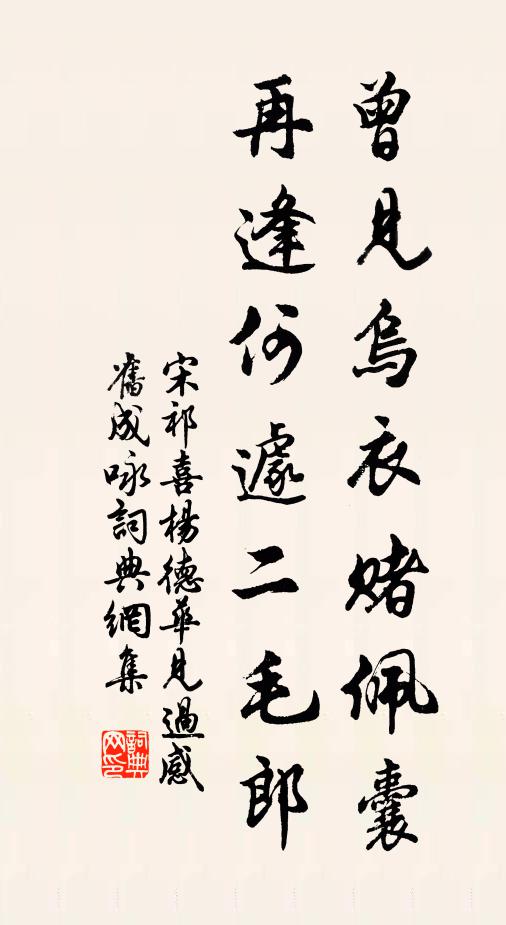 曾見烏衣賭佩囊
再逢何遽二毛郎
宋祁喜楊德華見過感
舊成咏詞典網集
詞典
网印